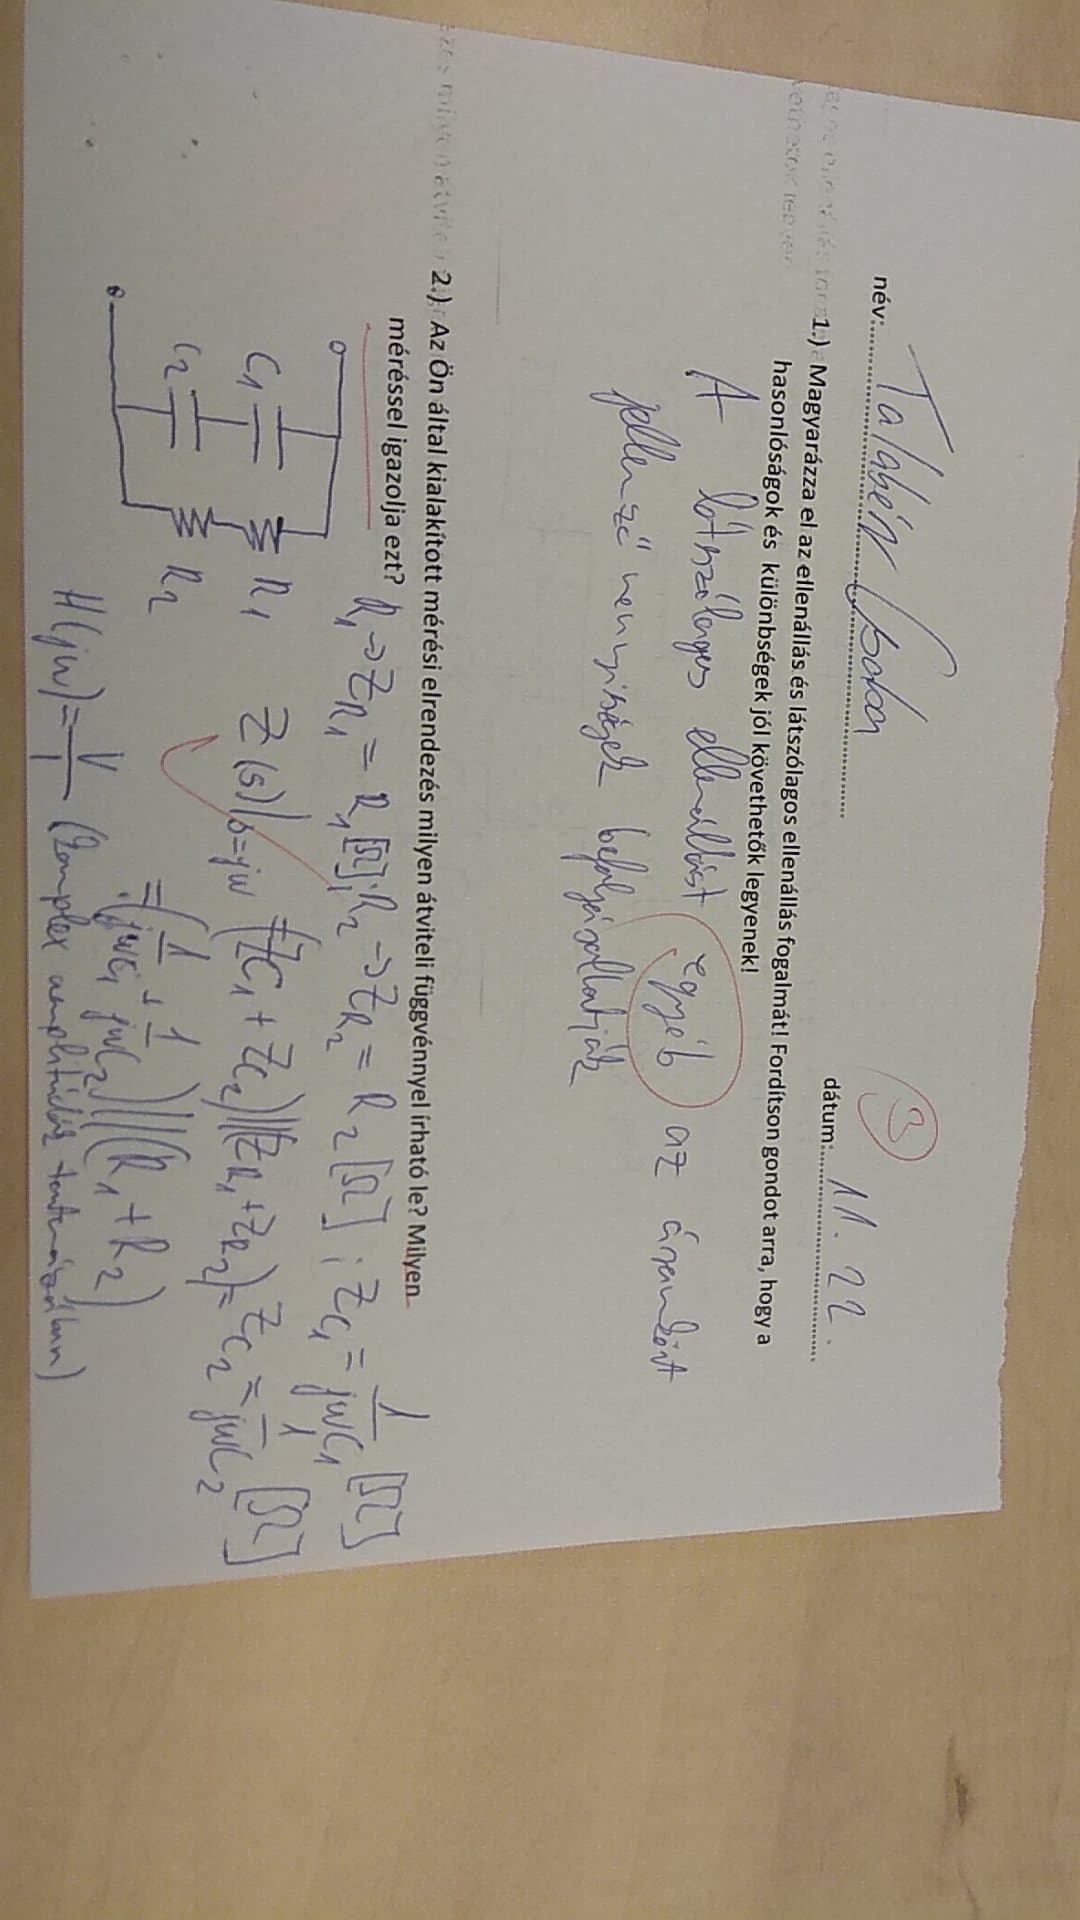 3
név: Csaba dátum: 11. 22.
1.) Magyarázza el az ellenállás és látszólagos ellenállás fogalmát! Fordítson gondot arra, hogy a
hasonlóságok és különbségek jól követhetők legyenek!
A látszólagos ellenállást egyéb az áramkört
jellemző mennyiségek befolyásolhatják
2.) Az Ön által kialakított mérési elrendezés milyen átviteli függvénnyel írható le? Milyen
méréssel igazolja ezt?
R₁→Z_R₁ = R₁[Ω]; R₂→Z_R₂ = R₂[Ω]; Z_C₁ = 1/jωC₁ [Ω]
Z_C₂ = 1/jωC₂ [Ω]
C₁ R₁
C₂ R₂
Z(s)|s=jω = (Z_C₁ + Z_C₂)||(Z_R₁ + Z_R₂) =
= (1/jωC₁ + 1/jωC₂)||(R₁ + R₂)
H(jω) = V/I (komplex amplitúdók tartományában)